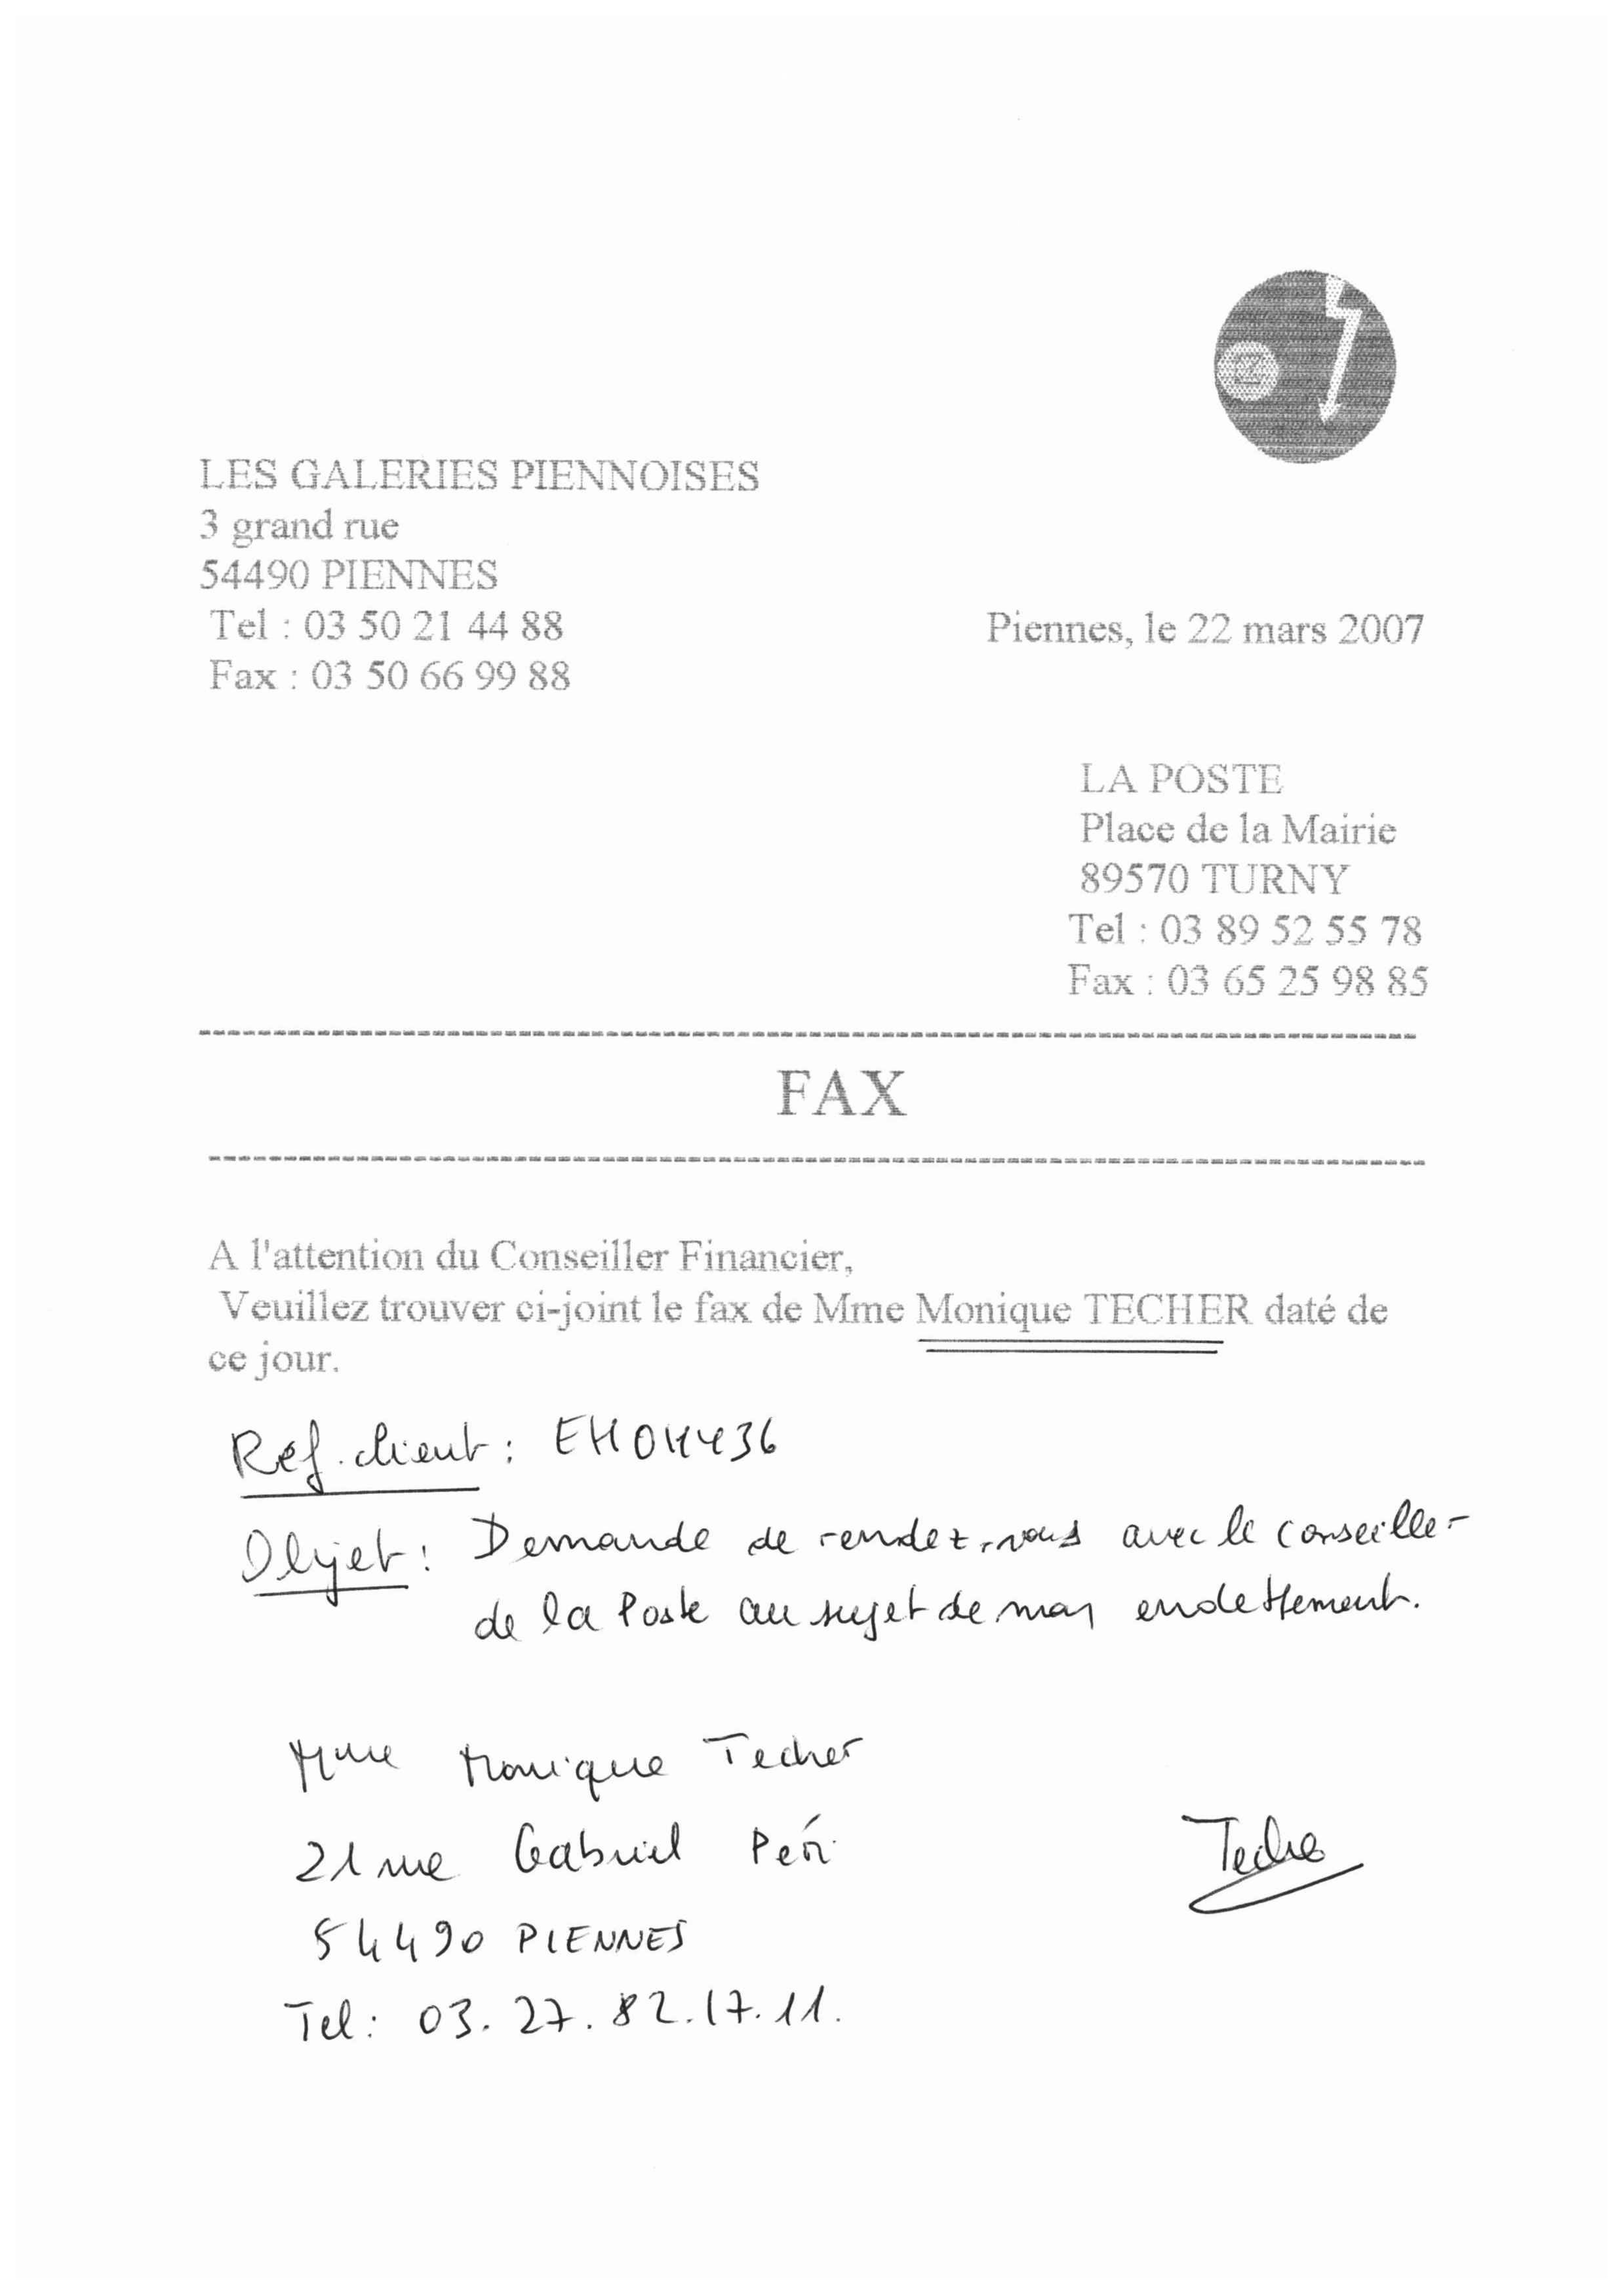 LES GALERIES PIENNOISES
3 grand rue
54490 PIENNES
Tel : 03 50 21 44 88
Fax : 03 50 66 99 88
Piennes, le 22 mars 2007
LA POSTE
Place de la Mairie
89570 TURNY
Tel : 03 89 52 55 78
Fax : 03 65 25 98 85
FAX
A l'attention du Conseiller Financier,
Veuillez trouver ci-joint le fax de Mme Monique TECHER daté de
ce jour.
Ref. client :
Objet : Demande de rendez-vous avec le conseiller
de la Poste au sujet de mon endettement.
Mme Monique Techer
21 rue Gabriel Péri
54490 PIENNES
Techer
Tel : 03. 27. 82. 17. 11.